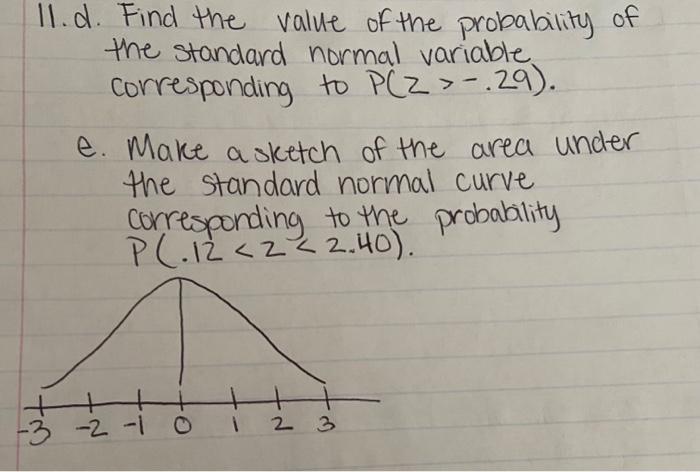 11.d. Find the value of the probability of
the standard normal variable
corresponding to P(Z > -.29).
e. Make a sketch of the area under
the standard normal curve
corresponding to the probability
P(.12 < z < 2.40).
-3 -2 -1 0 1 2 3